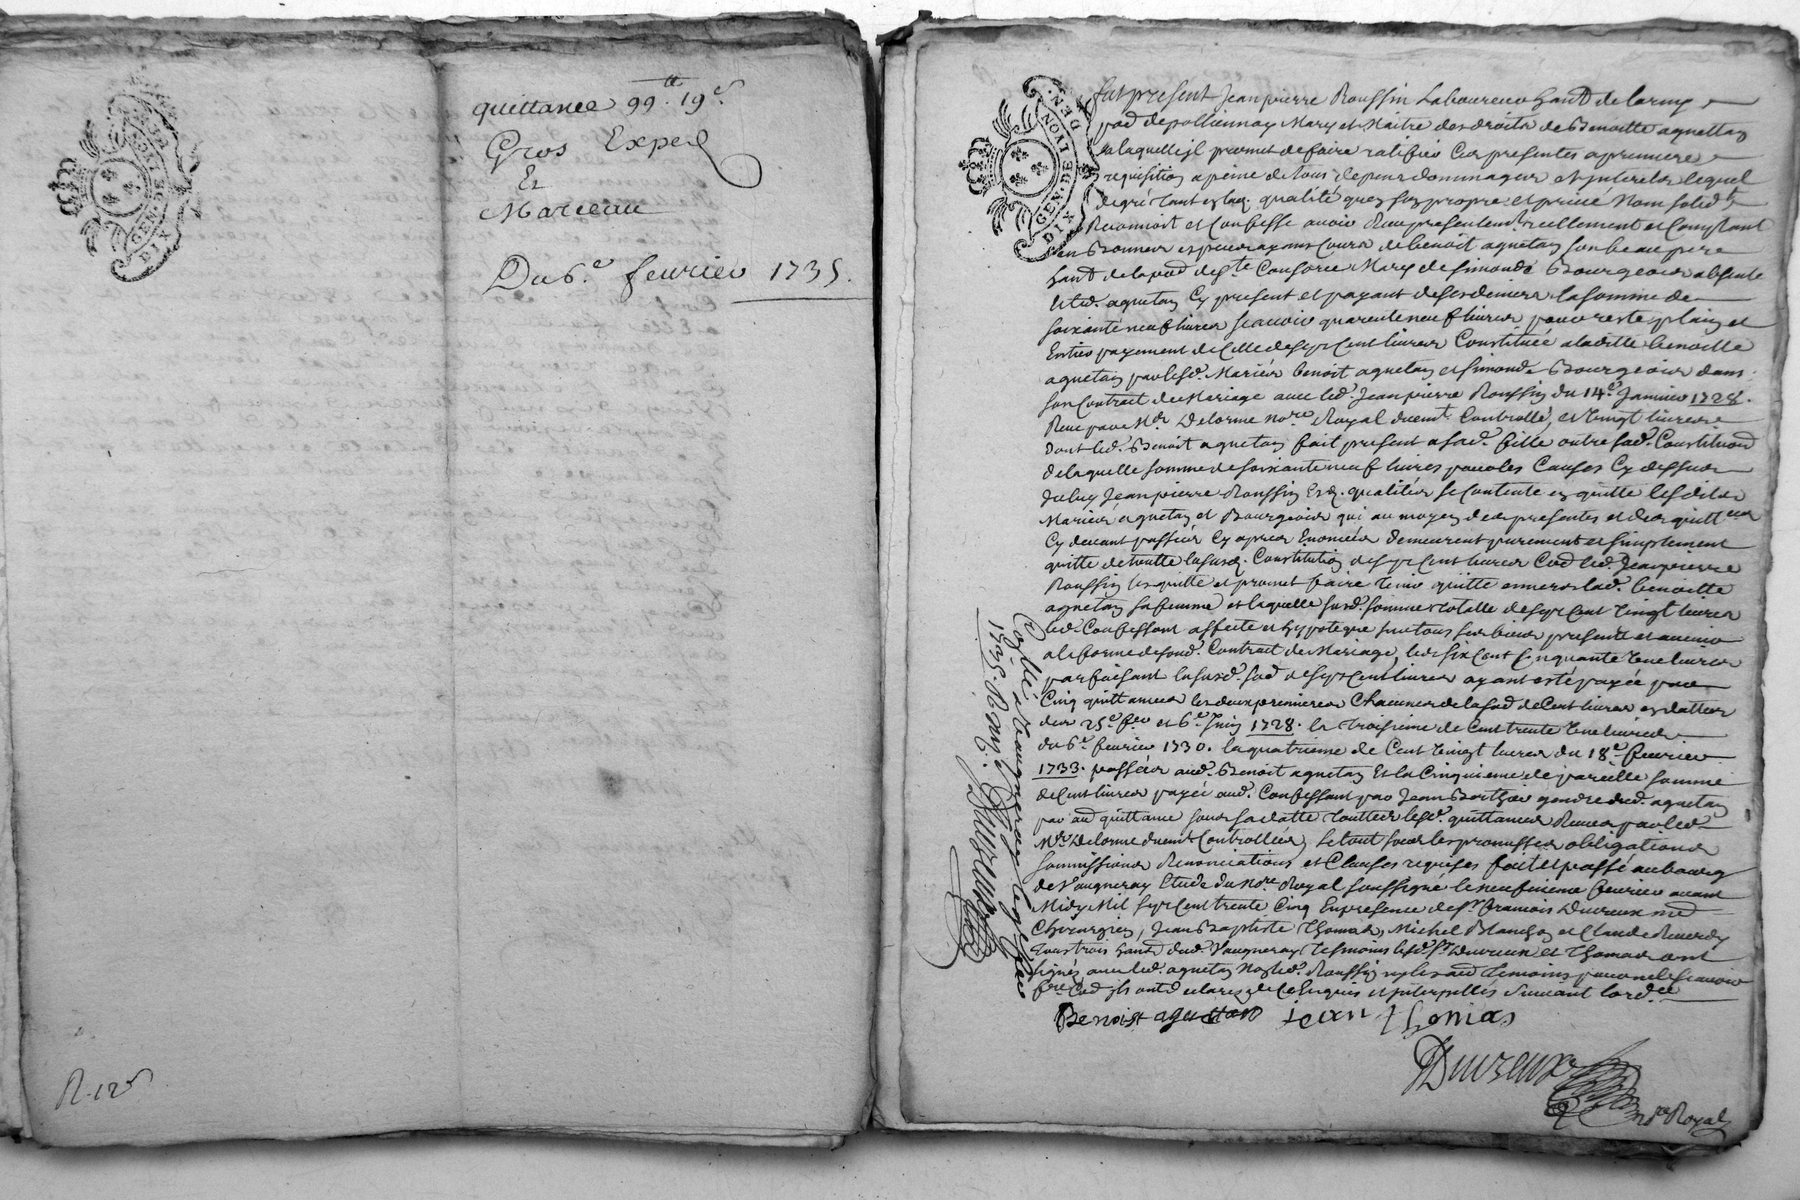 GEN. DE LYON
DIX DEN.
quittance 99tt 19s
Gros Exped
Et
Marceau
Du 6e fevrier 1735.
R. 12s
GEN. DE LYON. DEN.
DIX
fut present Jean pierre Roussin Laboureur hant de la
pad de pollionnay Mary et Maitre des droits de Benoitte aguettan
a laquelle jl promet de faire ratifier Ces presentes a premiere
requisition a peine de tous depens dommages et jnterets lequel
de gré tant esd. qualité quen son propre et privé Nom solid.t
Reconnoit et Confesse avoir Receu presentement reellement et Comptant
en Bonnes especes ayans Cours de benoit aguetan son beau pere
hant de lad pad de Ste Consorce Mary de Simonde Bourgeois absente
led. aguetan Cy present et payant de ses deniers la somme de
soixante neuf livres scavoir quarente neuf livres pour reste plain et
Entier payement de Celle de sept Cent livres Constituée a laditte benoitte
aguetan par lesd. Mariés benoit aguetan et Simonde Bourgeois dans
son Contrat de Mariage avec led. Jean pierre Roussin du 14e Janvier 1728.
Receu par Mr Delorme nore Royal duemt Controllé, et vingt livres
dont led. Benoit aguetan fait present a sad. fille outre sad. Constituon
de laquelle somme de soixante neuf livres pour les Causes Cy dessus
jceluy Jean pierre Roussin Esd. qualités se Contente et quitte lesdits
Mariés aguetan et Bourgeois qui au moyen des presentes et des quittces
Cy devant passées Cy apres Enoncées demeurent purement et simplement
quitte de toutte lasusd. Constitution de sept Cent livres Cad led. Jean pierre
Roussin les quitte et promet faire tenir quitte envers lad. benoitte
aguetan sa femme et laquelle susd. somme totalle de sept Cent vingt livres
led. Confessant affecte et hypoteque sur tous ses biens presents et avenir
a la forme de sond. Contrat de Mariage, les six Cent Cinquante une livres
parfaisant lasusd. sad de sept Cent livres ayant esté payée par
Cinq quittances les deux premieres Chacunes de la sad de Cent livres en datte
des 25e fev et 6e Juin 1728. la troisieme de Cent trente une livres
du 6e fevrier 1730. la quatrieme de Cent vingt livres du 18e fevrier
1733. passées aud. Benoit aguetan Et la Cinquieme de pareille somme
de Cent livres payée aud. Confessant par Jean gendre dud. aguetan
par quittance sous sa datte touttes lesd. quittances Receues par led.
Mr Delorme duemt Controllées, le tout sous les promesses obligations
soumissions Renonciations et Clauses requises fait et passé au bourg
de Vaugneray Etude du nore Royal soussigné le neufvieme fevrier avant
Midy Mil sept Cent trente Cinq En presence de Sr francois Duvreux Me
Chirurgien, Jean Baptiste Thomas, Michel Blanchon et Claude
tous trois hant dud. Vaugneray temoins lesd. Sr Duvreux et Thomas ont
signés avec led. aguetan Non led. Roussin ny lesd temoins pour ne le scavoir
fre Cad jls ont declarés de Ce Enquis et jnterpellés suivant lordce
Benoist aguettan jean thomas
Duvreux
nore Royal
Conllé a Vaugneray le 9e fev
1735.